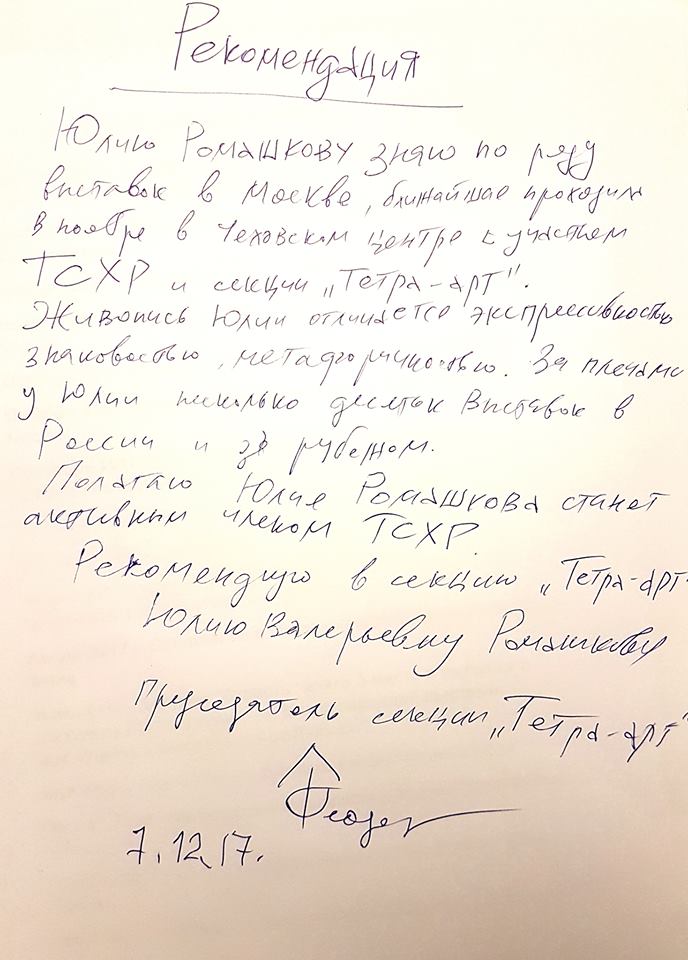 Рекомендация
Юлию Ромашкову знаю по ряду
выставок в Москве, ближайшая проходила
в ноябре в Чеховском центре с участием
ТСХР и секции „Тетра-арт".
Живопись Юлии отличается экспрессивностью
знаковостью, метафоричностью. За плечами
у Юлии несколько десятков выставок в
России и за рубежом.
Полагаю Юлия Ромашкова станет
активным членом ТСХР.
Рекомендую в секцию „Тетра-арт"
Юлию Валерьевну Ромашкову
Председатель секции „Тетра-арт"
7.12.17.